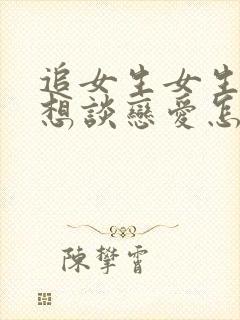 追女生女生
想談戀愛怎
陳攀霄